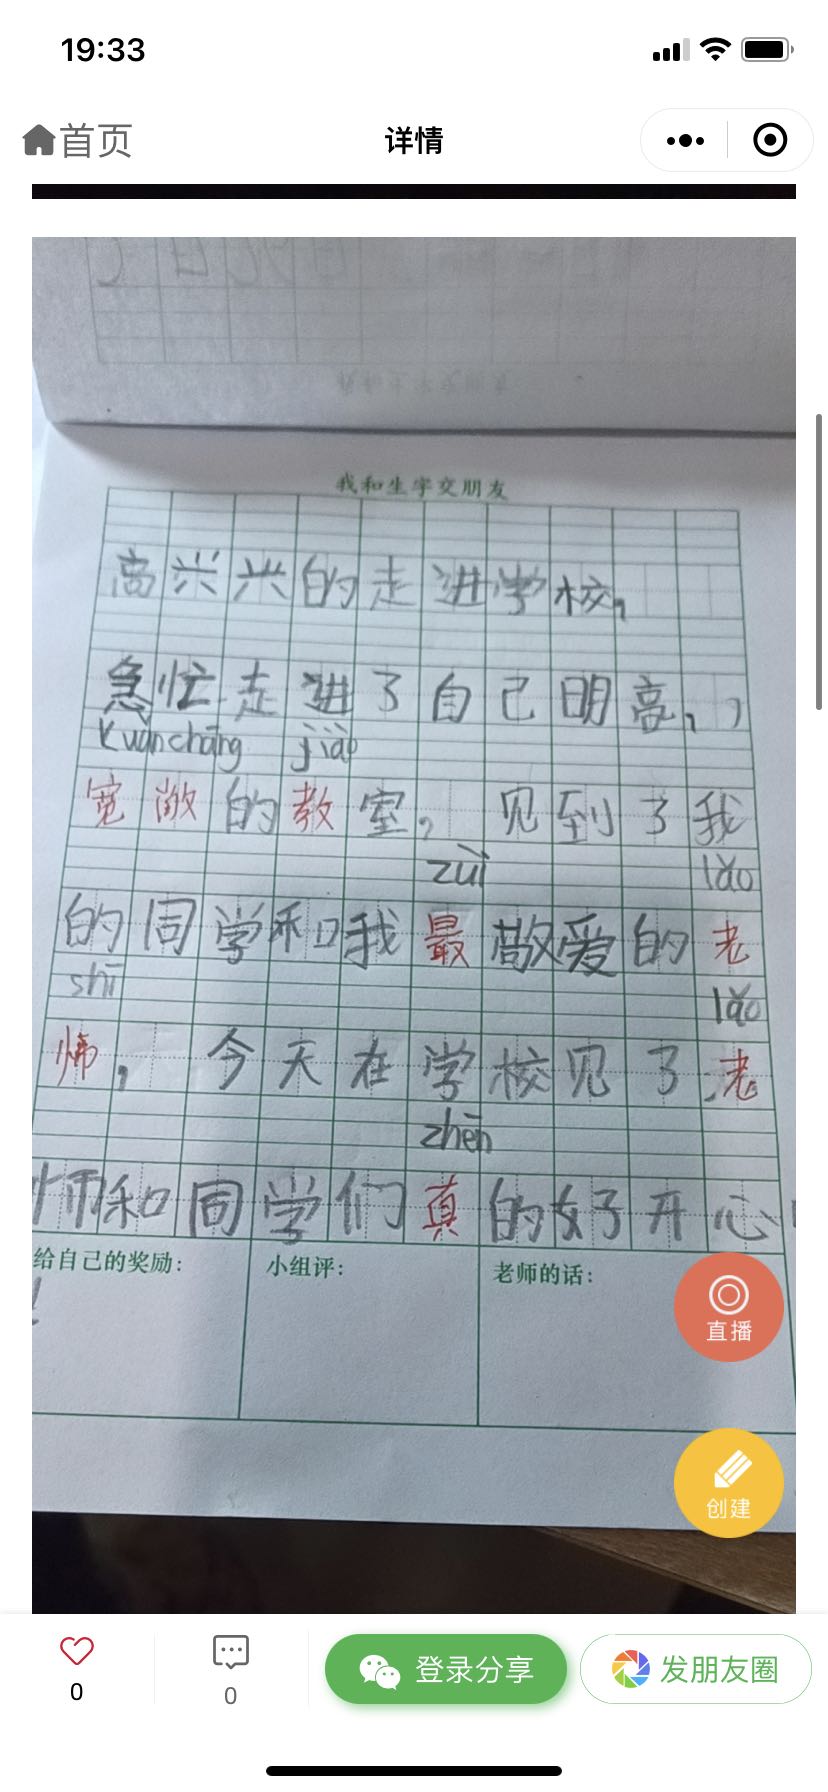 19:33
首页
详情
我和生字交朋友
高兴兴的走进学校，
急忙走进了自己明高，，
kuānchǎng jiào
宽敞的教室，见到了我
zuì lǎo
的同学和我最敬爱的老
shī lǎo
师，今天在学校见了老
zhēn
师和同学们真的好开心
给自己的奖励：
小组评：
老师的话：
直播
创建
0
0
登录分享
发朋友圈